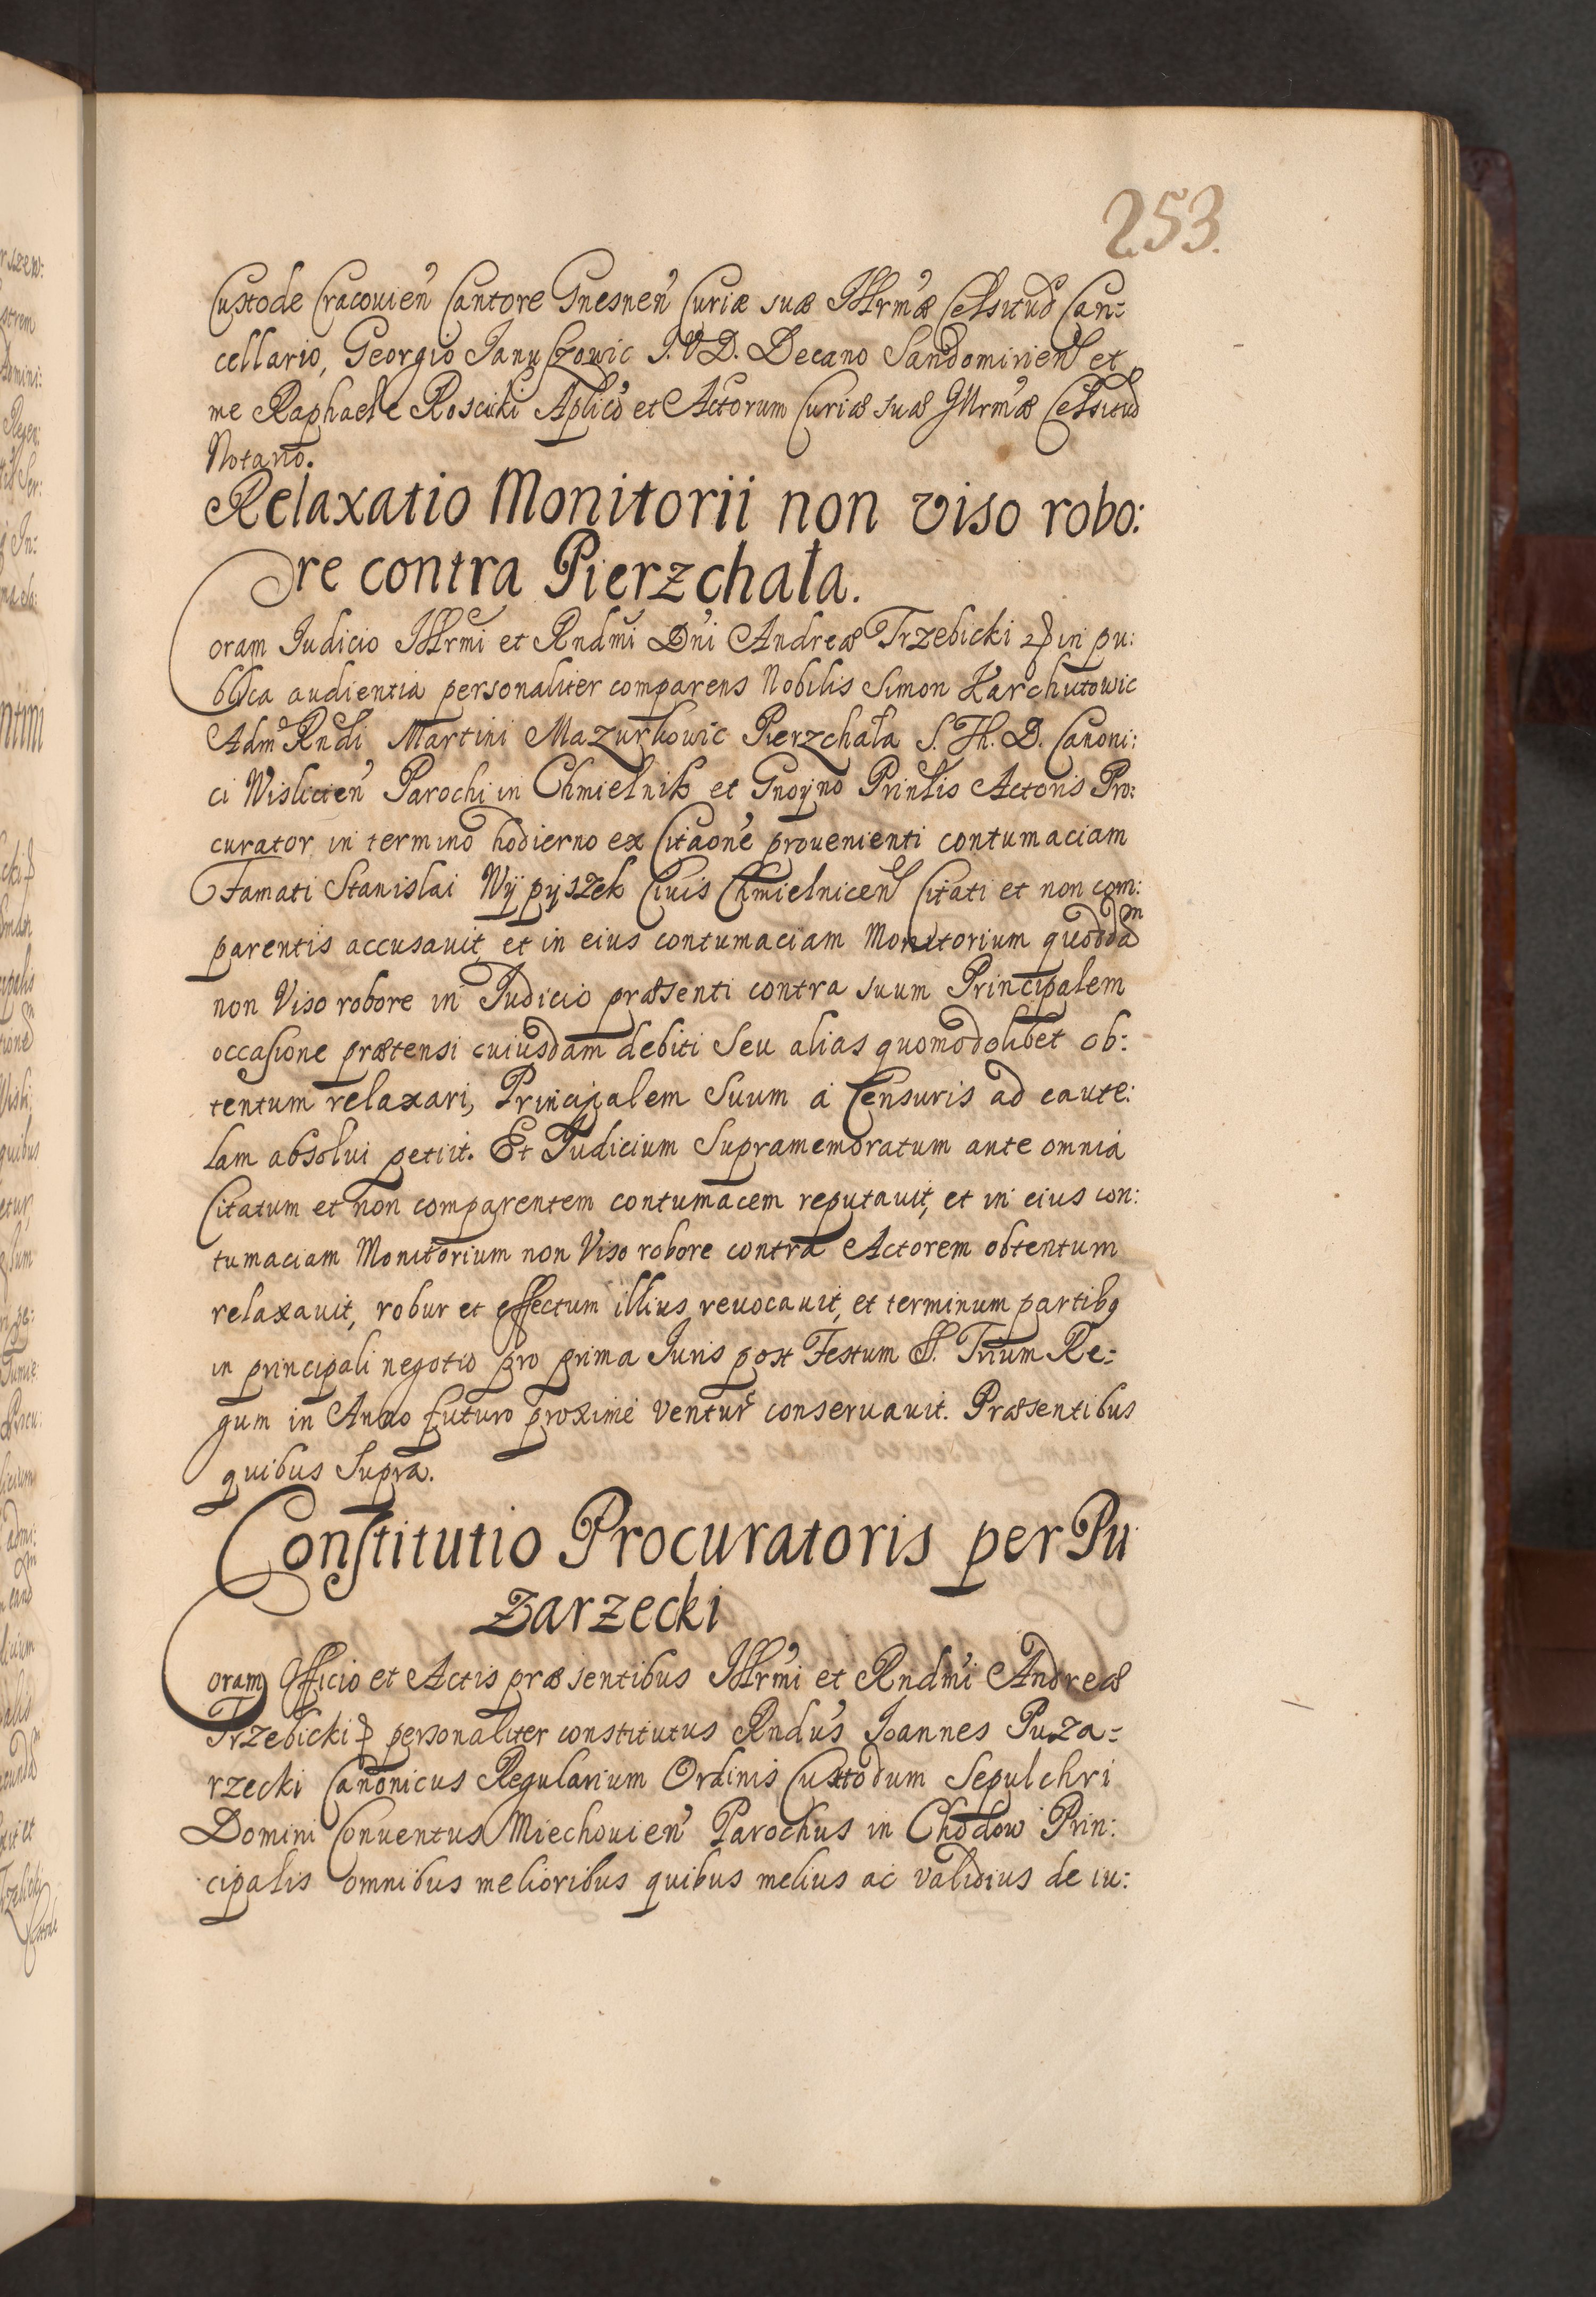 253.
Custode Cracouien̄ Cantore Gnesnen̄ Curiæ suæ Illrm̄æ Celsitud Can:
cellario, Georgio Januszowic J. V D. Decano Sandomirien et
me Raphaele Roscicki Aplico et Actorum Curiæ suæ Illrm̄æ Celsitud
Notario.
Relaxatio Monitorii non viso robo:
re contra Pierzchała.
Coram Judicio Illrmi et Rndmi Dn̄i Andreæ Trzebicki & in pu:
blica audientia personaliter comparens Nobilis Simon Karchutowic
Adm̄ Rndi Martini Mazurkowic Pierzchała S. Th. D. Canoni:
ci Wislicien̄ Parochi in Chmielnik et Gnoyno Prinlis Actoris Pro:
curator in termino hodierno ex Citaōne prouenienti contumaciam
Famati Stanislai Wÿpÿszek Ciuis Chmielnicen Citati et non com:
parentis accusauit, et in eius contumaciam Monitorium quoddam
non Viso robore in Judicio præsenti contra suum Principalem
occasione prætensi cuiusdam debiti Seu alias quomodolibet ob:
tentum relaxari, Principalem Suum a Censuris ad caute:
lam absolui petiit. Et Judicium Supramemoratum ante omnia
Citatum et non comparentem contumacem reputauit, et in eius con:
tumaciam Monitorium non Viso robore contra Actorem obtentum
relaxauit, robur et effectum illius reuocauit, et terminum partibq
in principali negotio pro prima Juris post Festum SS. Trium Re:
gum in Anno futuro proxime Ventur conseruauit. Præsentibus
quibus Supra.
Constitutio Procuratoris per Pu
zarzecki
Coram Officio et Actis præsentibus Illrm̄i et Rndm̄i Andreæ
Trzebicki & personaliter constitutus Rndūs Joannes Puza:
rzecki Canonicus Regularium Ordinis Custodum Sepulchri
Domini Conuentus Miechouien̄ Parochus in Chodow Prin:
cipalis omnibus melioribus quibus melius ac validius de iu: